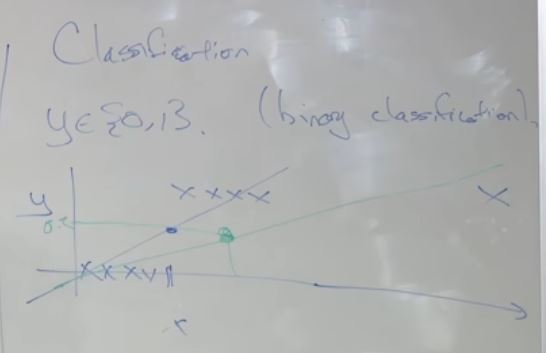 Classification
y ∈ {0,1}. (binary classification).
x x x x
y
x
0.5
x x x x
x